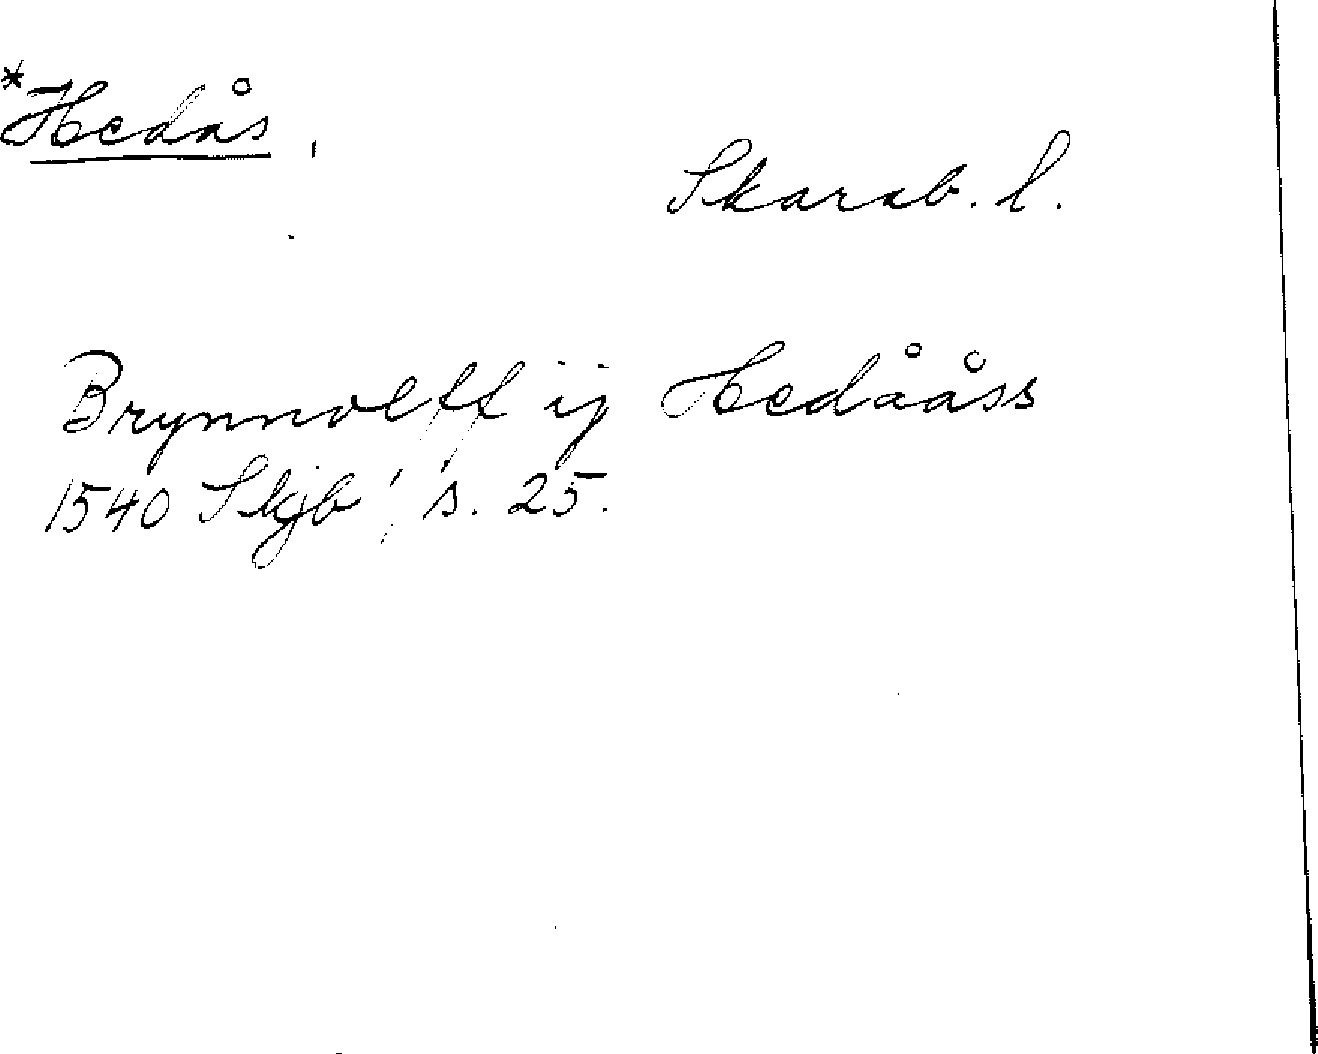 *Hedås,
Skarab. l.
Brynnolff ij Hedååss
1540 Skjb', s. 25.